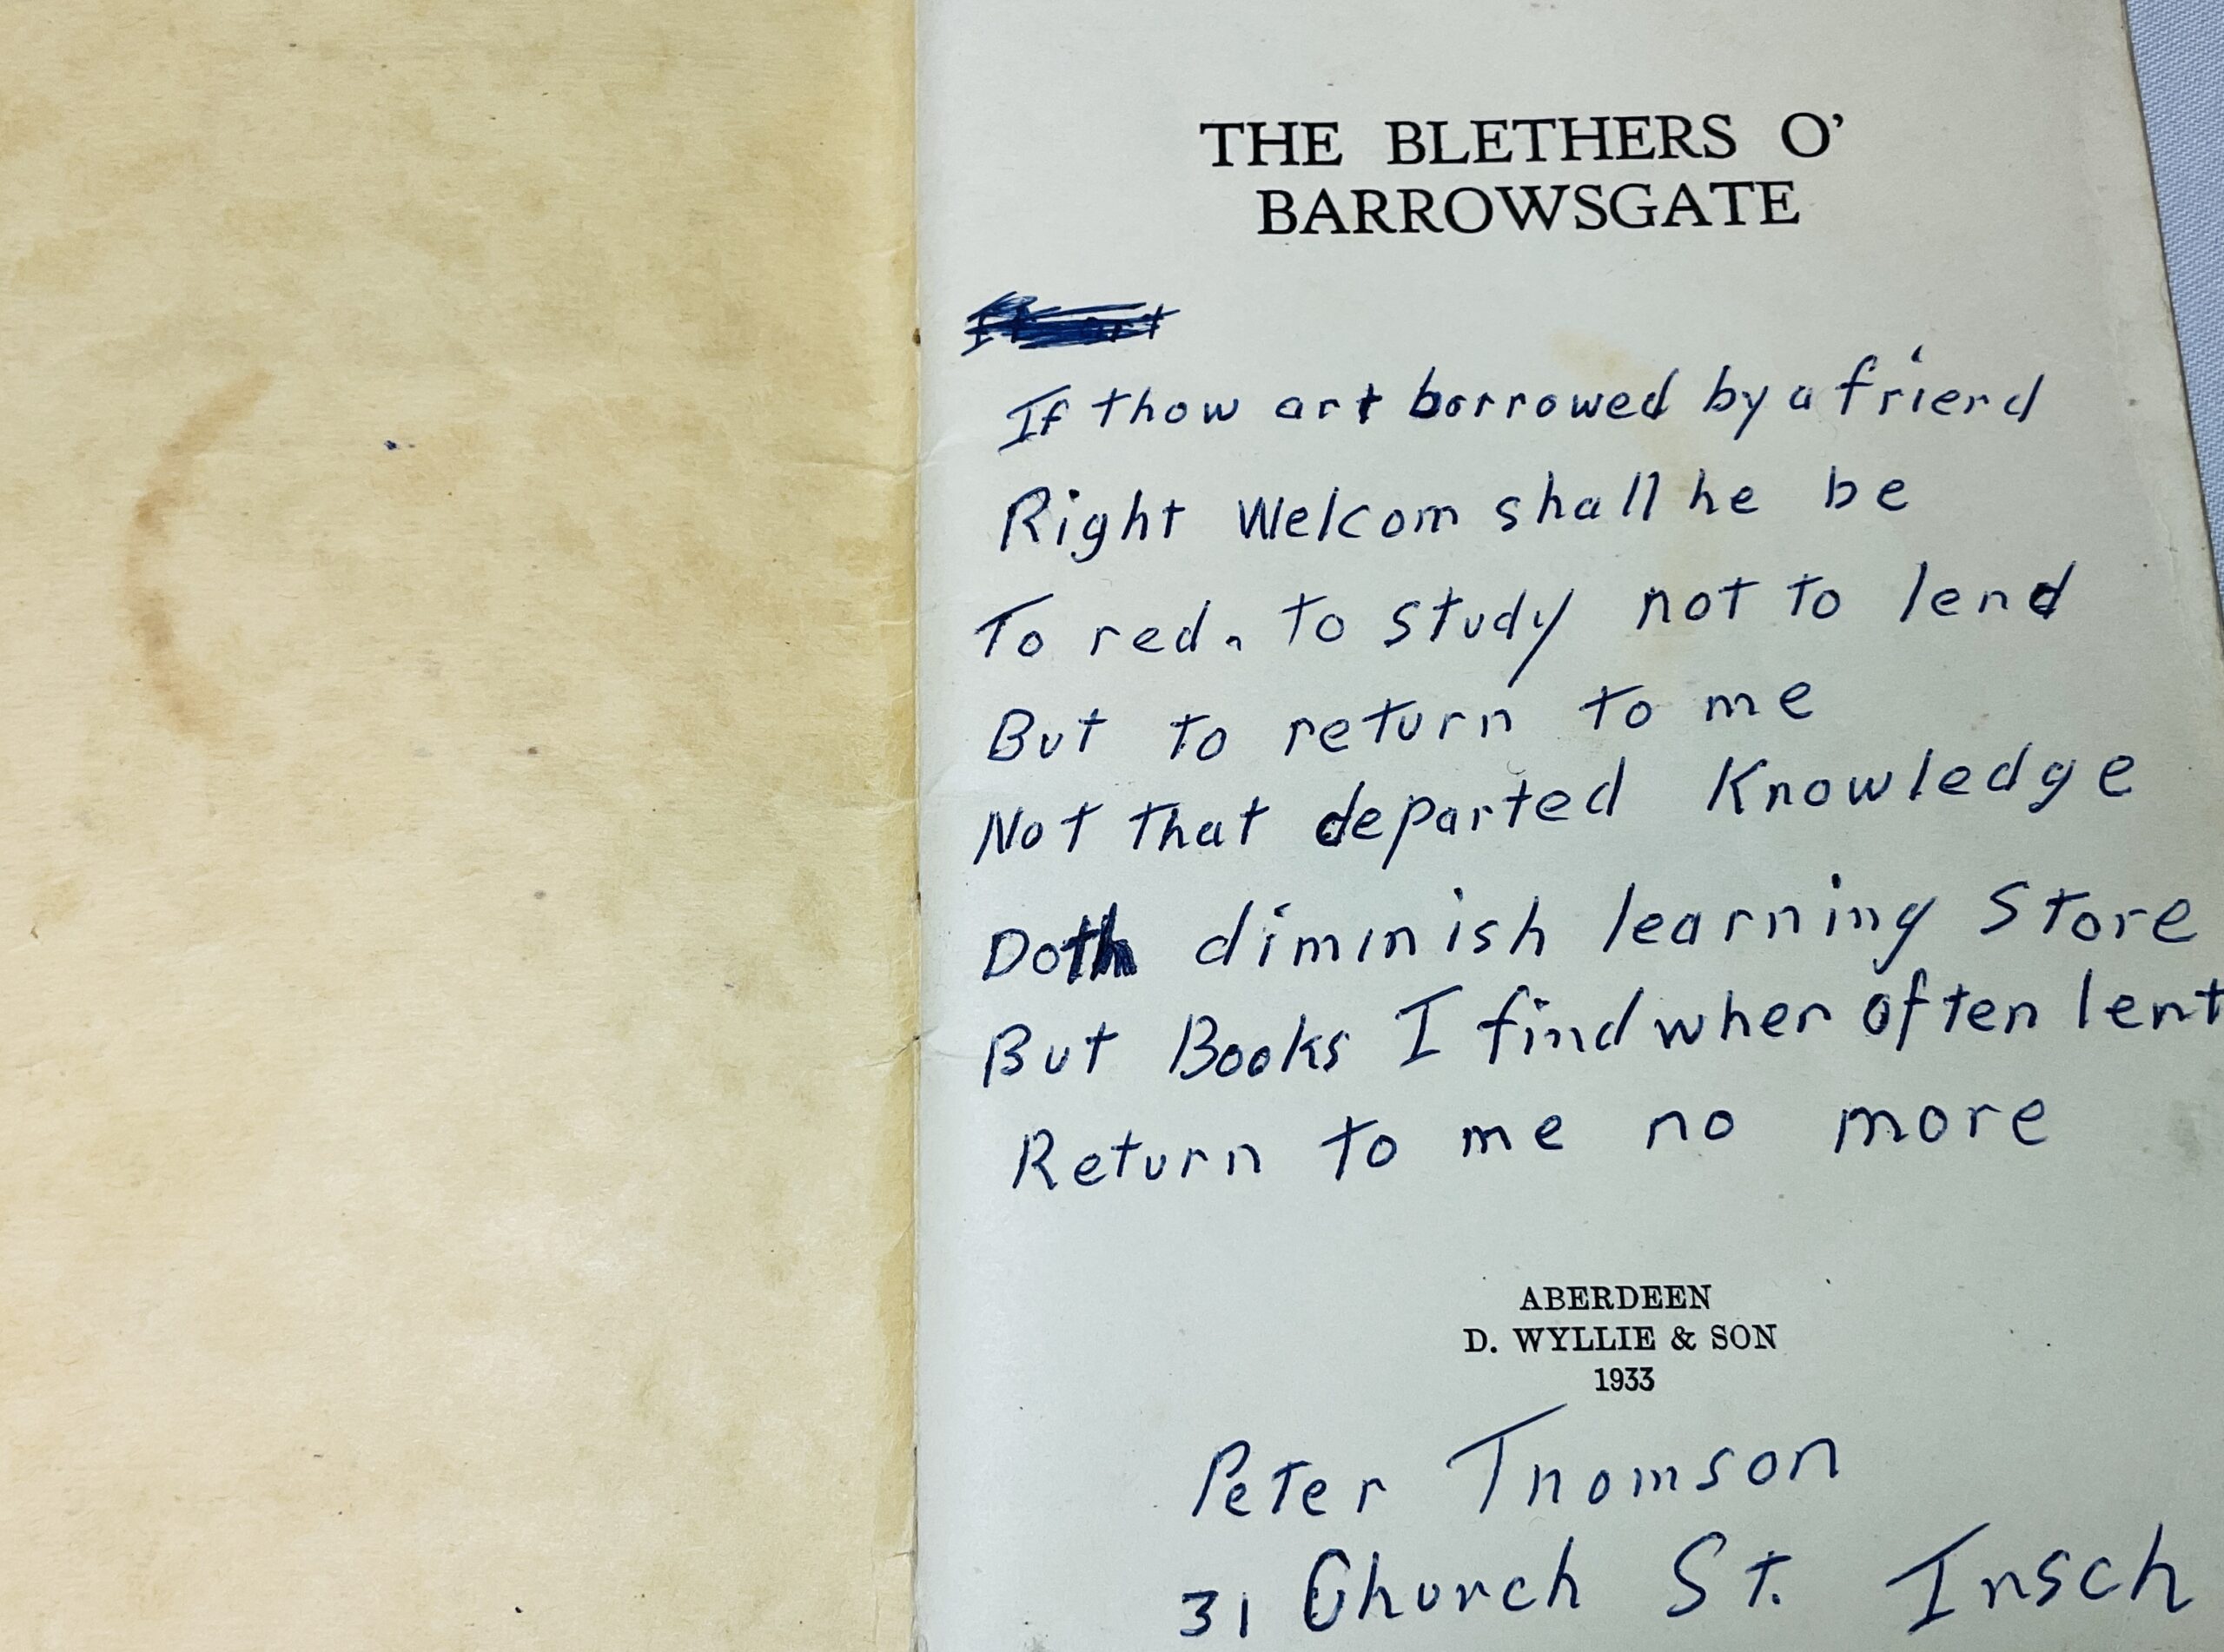 THE BLETHERS O'
BARROWSGATE
If thow art borrowed by a friend
Right Welcom shall he be
To red. to study not to lend
But to return to me
Not that departed Knowledge
Doth diminish learning Store
But Books I find when often lent
Return to me no more
ABERDEEN
D. WYLLIE & SON
1933
Peter Thomson
31 Church St. Insch